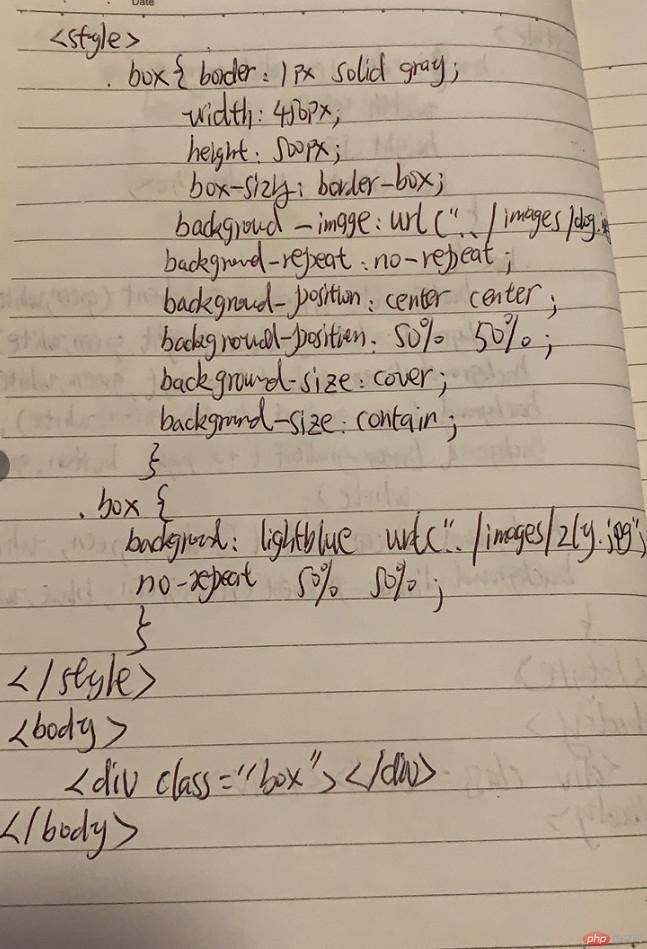 Date
<style>
.box{ border: 1px solid gray;
width: 450px;
height: 500px;
box-sizy: border-box;
backgroud-image: url("../images/dog.
backgroud-repeat: no-repeat;
backgroud-position: center center;
background-position: 50% 50%;
background-size: cover;
background-size: contain;
}
.box {
backgroud: lightblue url("../images/zly.jpg";
no-repeat 50% 50%;
}
</style>
<body>
<div class="box"></div>
</body>
php